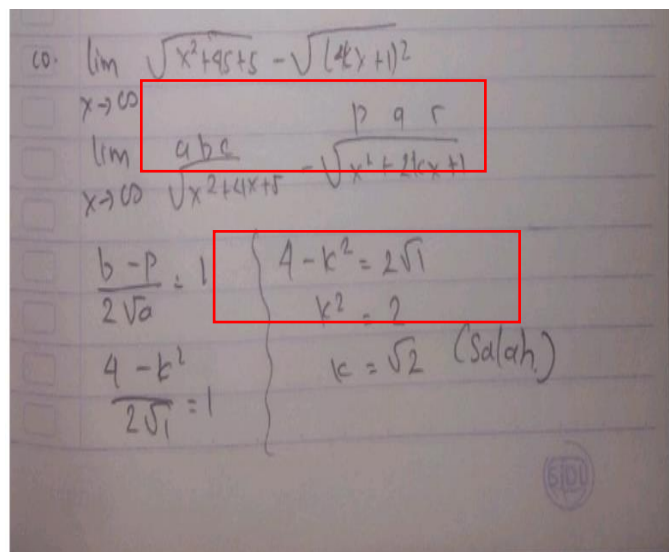 10. lim √x²+45+5 - √(4kx+1)²
x→∞
p q r
lim a b c
x→∞ √x²+4x+5 - √x²+2kx+1
b-p/2√a = 1
4-k²/2√1 = 1
4-k² = 2√1
k² = 2
k = √2 (Salah)
SIDU